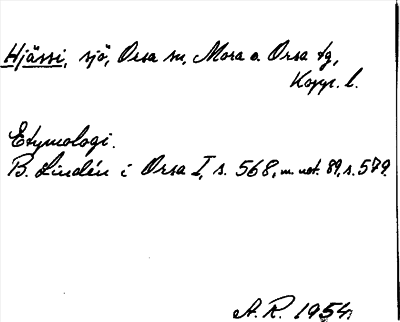 Hjässi, sjö, Orsa sn, Mora o. Orsa tg,
Kopp. l.
Etymologi.
B. Lindén i Orsa I, s. 568, m. not. 89, s. 579.
A. R. 1954.